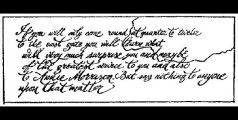 If you will only come round at quarter to twelve
to the east gate you will learn what
will very much surprise you and maybe
be the greatest service to you and also
to Annie Morrison. But say nothing to anyone
upon the matter